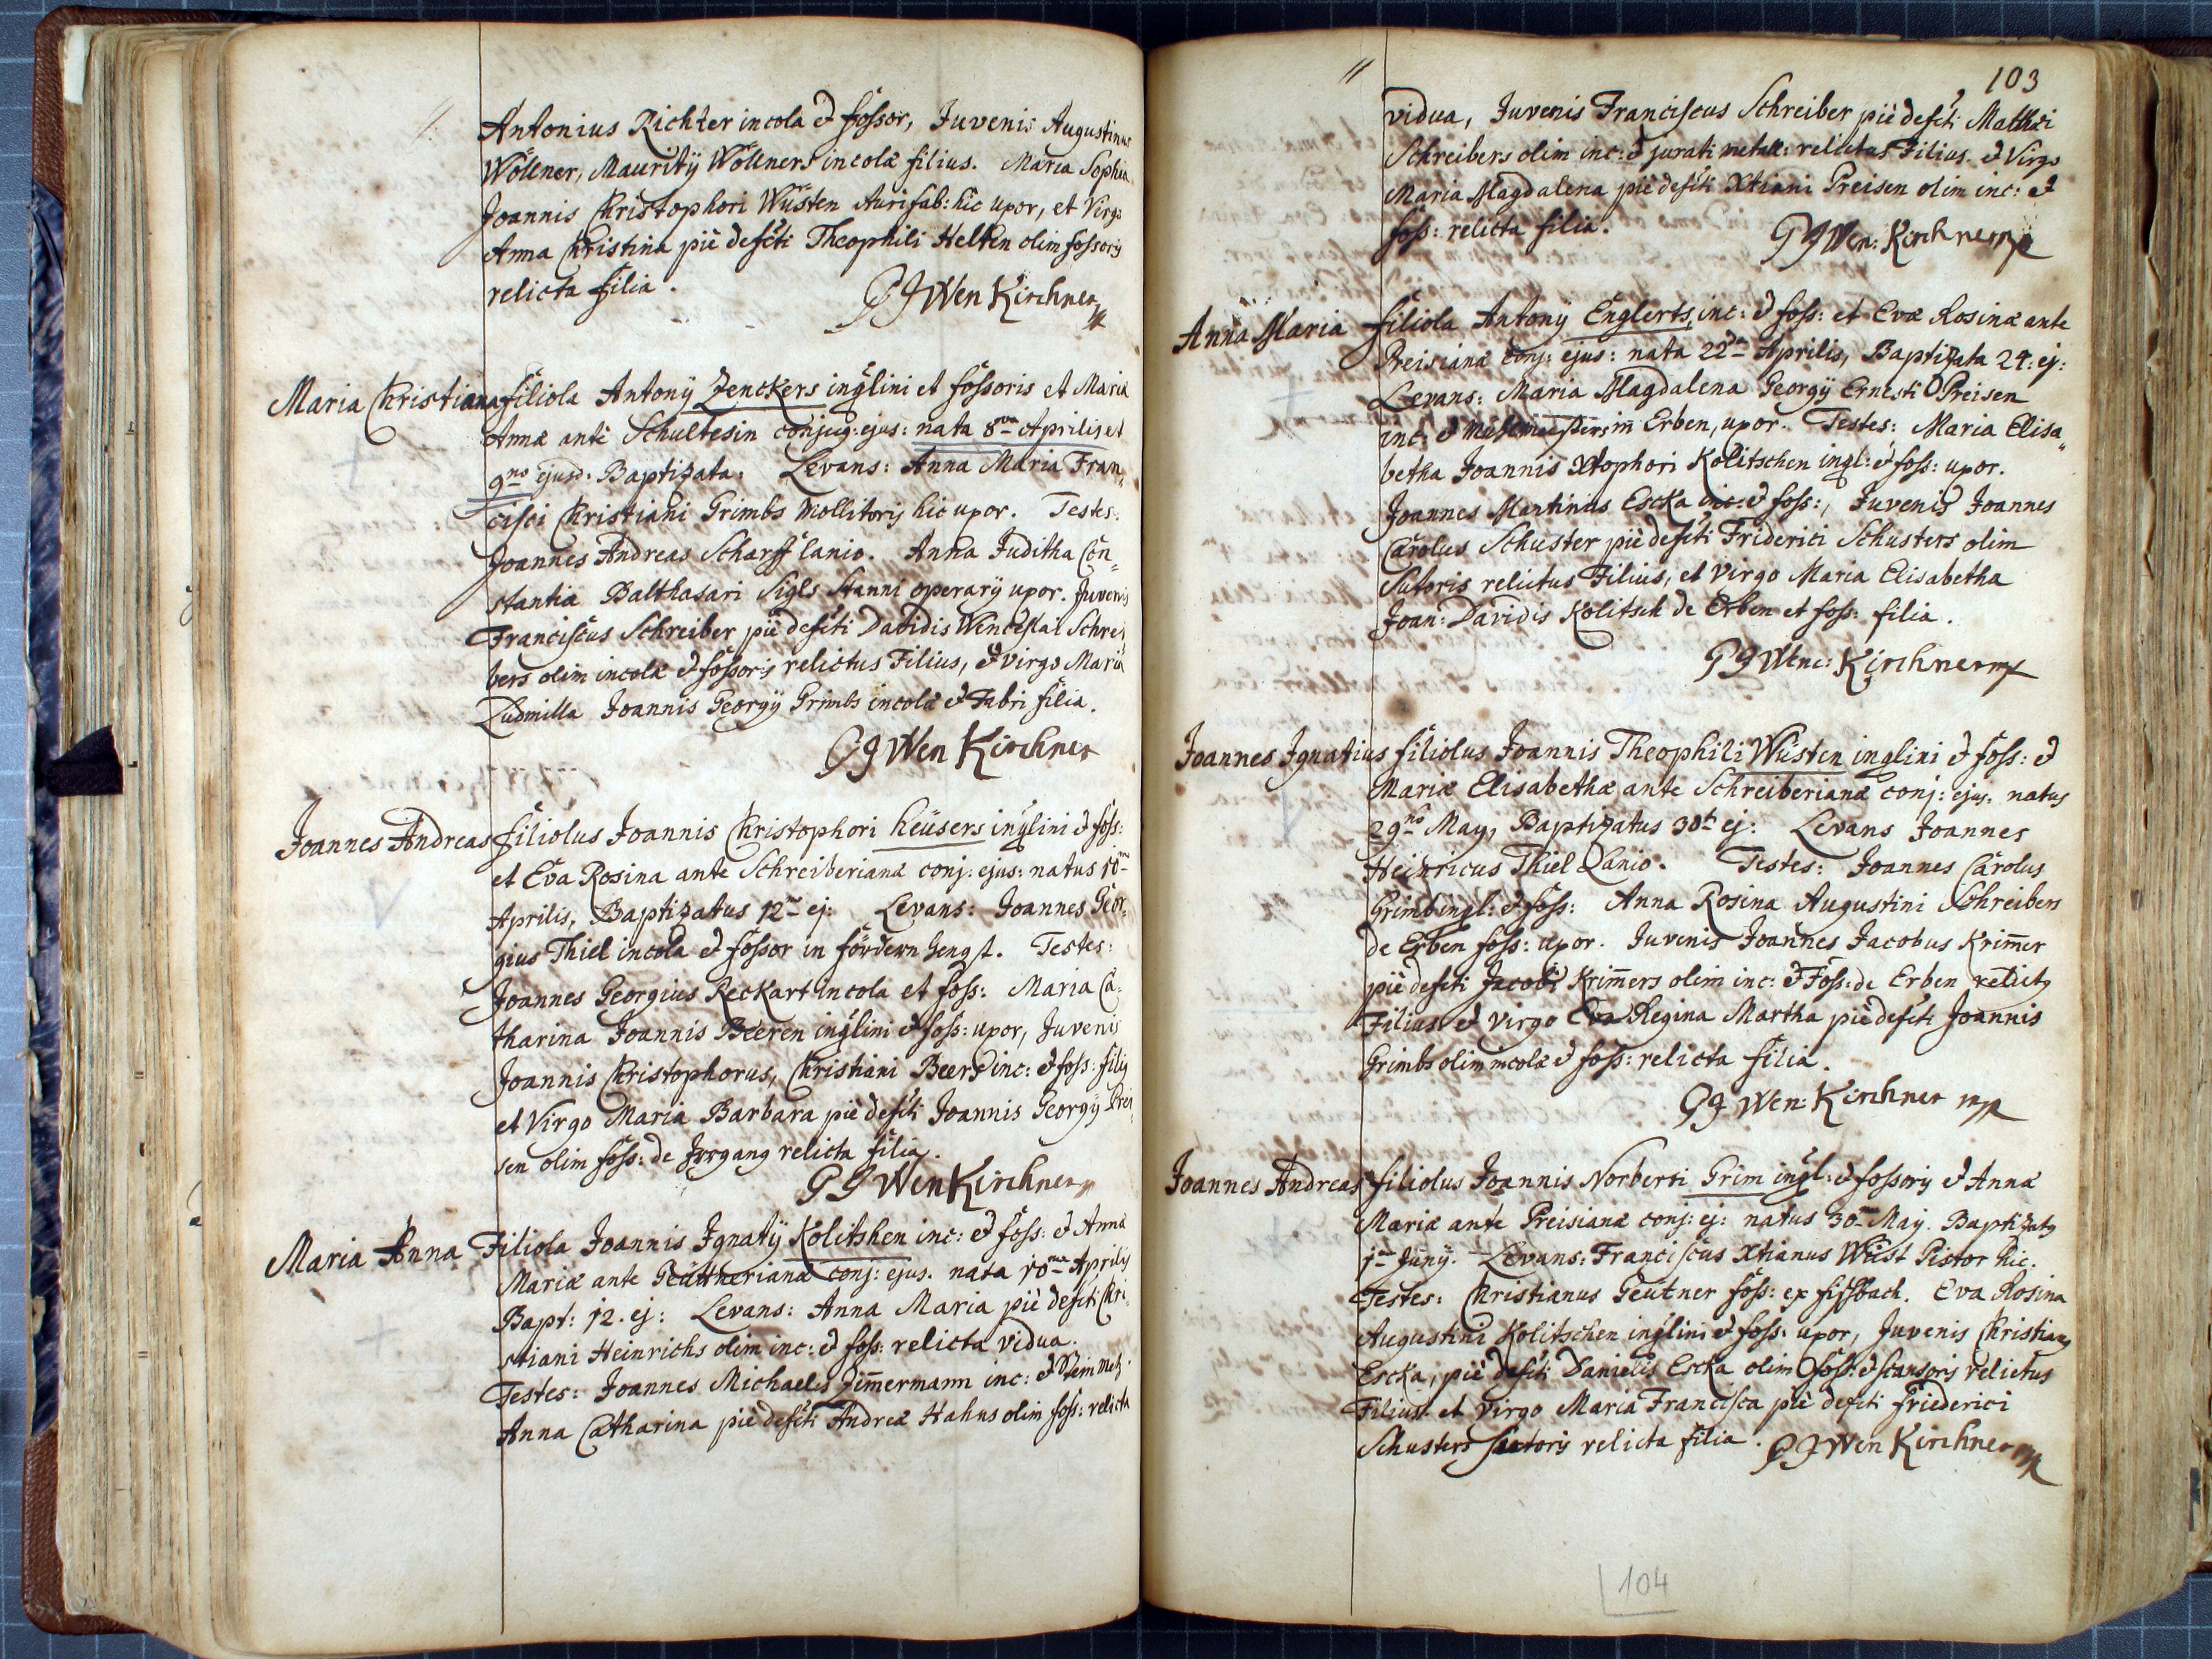 Antonius Richter incola et fossor, Juvenis Augustinus
Wöllner, Maurityÿ Wöllners incolæ filius. Maria Sophia
Joannis Christophori Wüsten Aurifab: hic uxor, et Virgo
Anna Christina piè defcti Theophili Helten olim fossoris
relicta filia.
P J Wen Kirchner
Maria Christiana filiola Antonÿ Zenckers inqlini et fossoris et Maria
Annæ antè Schultesin conjug: ejus: nata 8va Aprilis et
9no ejusd. Baptizata. Levans: Anna Maria Fran„
cisci Christiani Grimbs Mollitoris hic uxor. Testes:
Joannes Andreas Scharff lanio. Anna Juditha Con„
stantia Balthasari Sigls stanni operarÿ uxor. Juvenis
Franciscus Schreiber piè defcti Davidis Wenceslai Schrei
bers olim incolæ et fossoris relictus Filius, et virgo Maria
Ludmilla Joannis Georgÿ Grimbs incolæ et Fabri filia.
P J Wen Kirchner
Joannes Andreas filiolus Joannis Christophori heüsers inqlini et foss:
et Eva Rosina ante Schreiberiana conj: ejus: natus 10ma
Aprilis, Baptizatus 12ma ej: Levans: Joannes Geor„
gius Thiel incola et fossor in fördern hengst. Testes:
Joannes Georgius Reckart incola et foss: Maria Ca„
tharina Joannis Beeren inqlini et foss: uxor, Juvenis
Joannis Christophorus, Christiani Beers inc: et foss: filiꝰ
et Virgo Maria Barbara piè defcti Joannis Georgÿ Prei„
sen olim foss: de Jrrgang relicta filia.
P J Wen Kirchner
Maria Anna Filiola Joannis Jgnatÿ Kolitshen inc: et foss: et Anna
Mariæ ante Geüttneriana conj: ejus. nata 10ma Aprilis
Bapt: 12. ej: Levans: Anna Maria piè defcti Chri„
stiani Heinrichs olim inc: et foss: relicta vidua.
Testes: Joannes Michaelis Zimmermann inc: et Stein Metz.
Anna Catharina piè defcti Andreæ Hahns olim foss: relicta
103
vidua, Juvenis Franciscus Schreiber piè defcti Matthæi
Schreibers olim inc: et jurati metall: relictus Filius. et Virgo
Maria Magdalena piè defcti Xtiani Preisen olim inc: et
foss: relicta filia.
P J Wen: Kirchner mp
Anna Maria filiola Antonÿ Englerts, inc: et foss: et Evæ Rosinæ ante
Preisianæ conj: ejus: nata 22da Aprilis, Baptizata 24: ej:
Levans: Maria Magdalena Georgÿ Ernesti Preisen
inc: et in Erben, uxor. Testes: Maria Elisa„
betha Joannis Xtophori Kolitschen inql: et foss: uxor.
Joannes Martinus Escka inc: et foss:, Juvenis Joannes
Carolus Schuster piè defcti Friderici Schusters olim
Sutoris relictus Filius, et Virgo Maria Elisabetha
Joan: Davidis Kolitsch de Erben et foss: filia.
P J Wenc: Kirchner mp
Joannes Jgnatius filiolus Joannis Theophili Wüsten inqlini et foss: et
Mariæ Elisabethæ ante Schreiberianæ conj: ejus. natus
29no Maÿ, Baptizatus 30t ej: Levans Joannes
Heinricus Thiel Lanio. Testes: Joannes Carolus
Grimb inql: et foss: Anna Rosina Augustini Schreibers
de Erben foss: uxor. Juvenis Joannes Jacobus Krim̅er
piè defcti Jacobi Krim̅ers olim inc: et Foss: de Erben relictꝰ
Filius et virgo Eva Regina Martha piè defcti Joannis
Grimbs olim incolæ et foss: relicta filia.
P J Wen: Kirchner mp
Joannes Andreas filiolus Joannis Norberti Grim inql: et fossoris et Anna
Mariæ ante Preisianæ conj: ej: natus 30ma Maÿ. Baptizatꝰ
1ma Junÿ. Levans: Franciscus Xtianus Wüst Pistor hic.
Testes: Christianus Geütner foss: ex . Eva Rosina
Augustini Kolitschen inqlini et foss: uxor, Juvenis Christianꝰ
Escka, piè defcti Danielis Escka olim foss: et scansoris relictus
Filius. et Virgo Maria Francisca piè defcti Friederici
Schusters sutoris relicta filia. P J Wen Kirchner mp
104